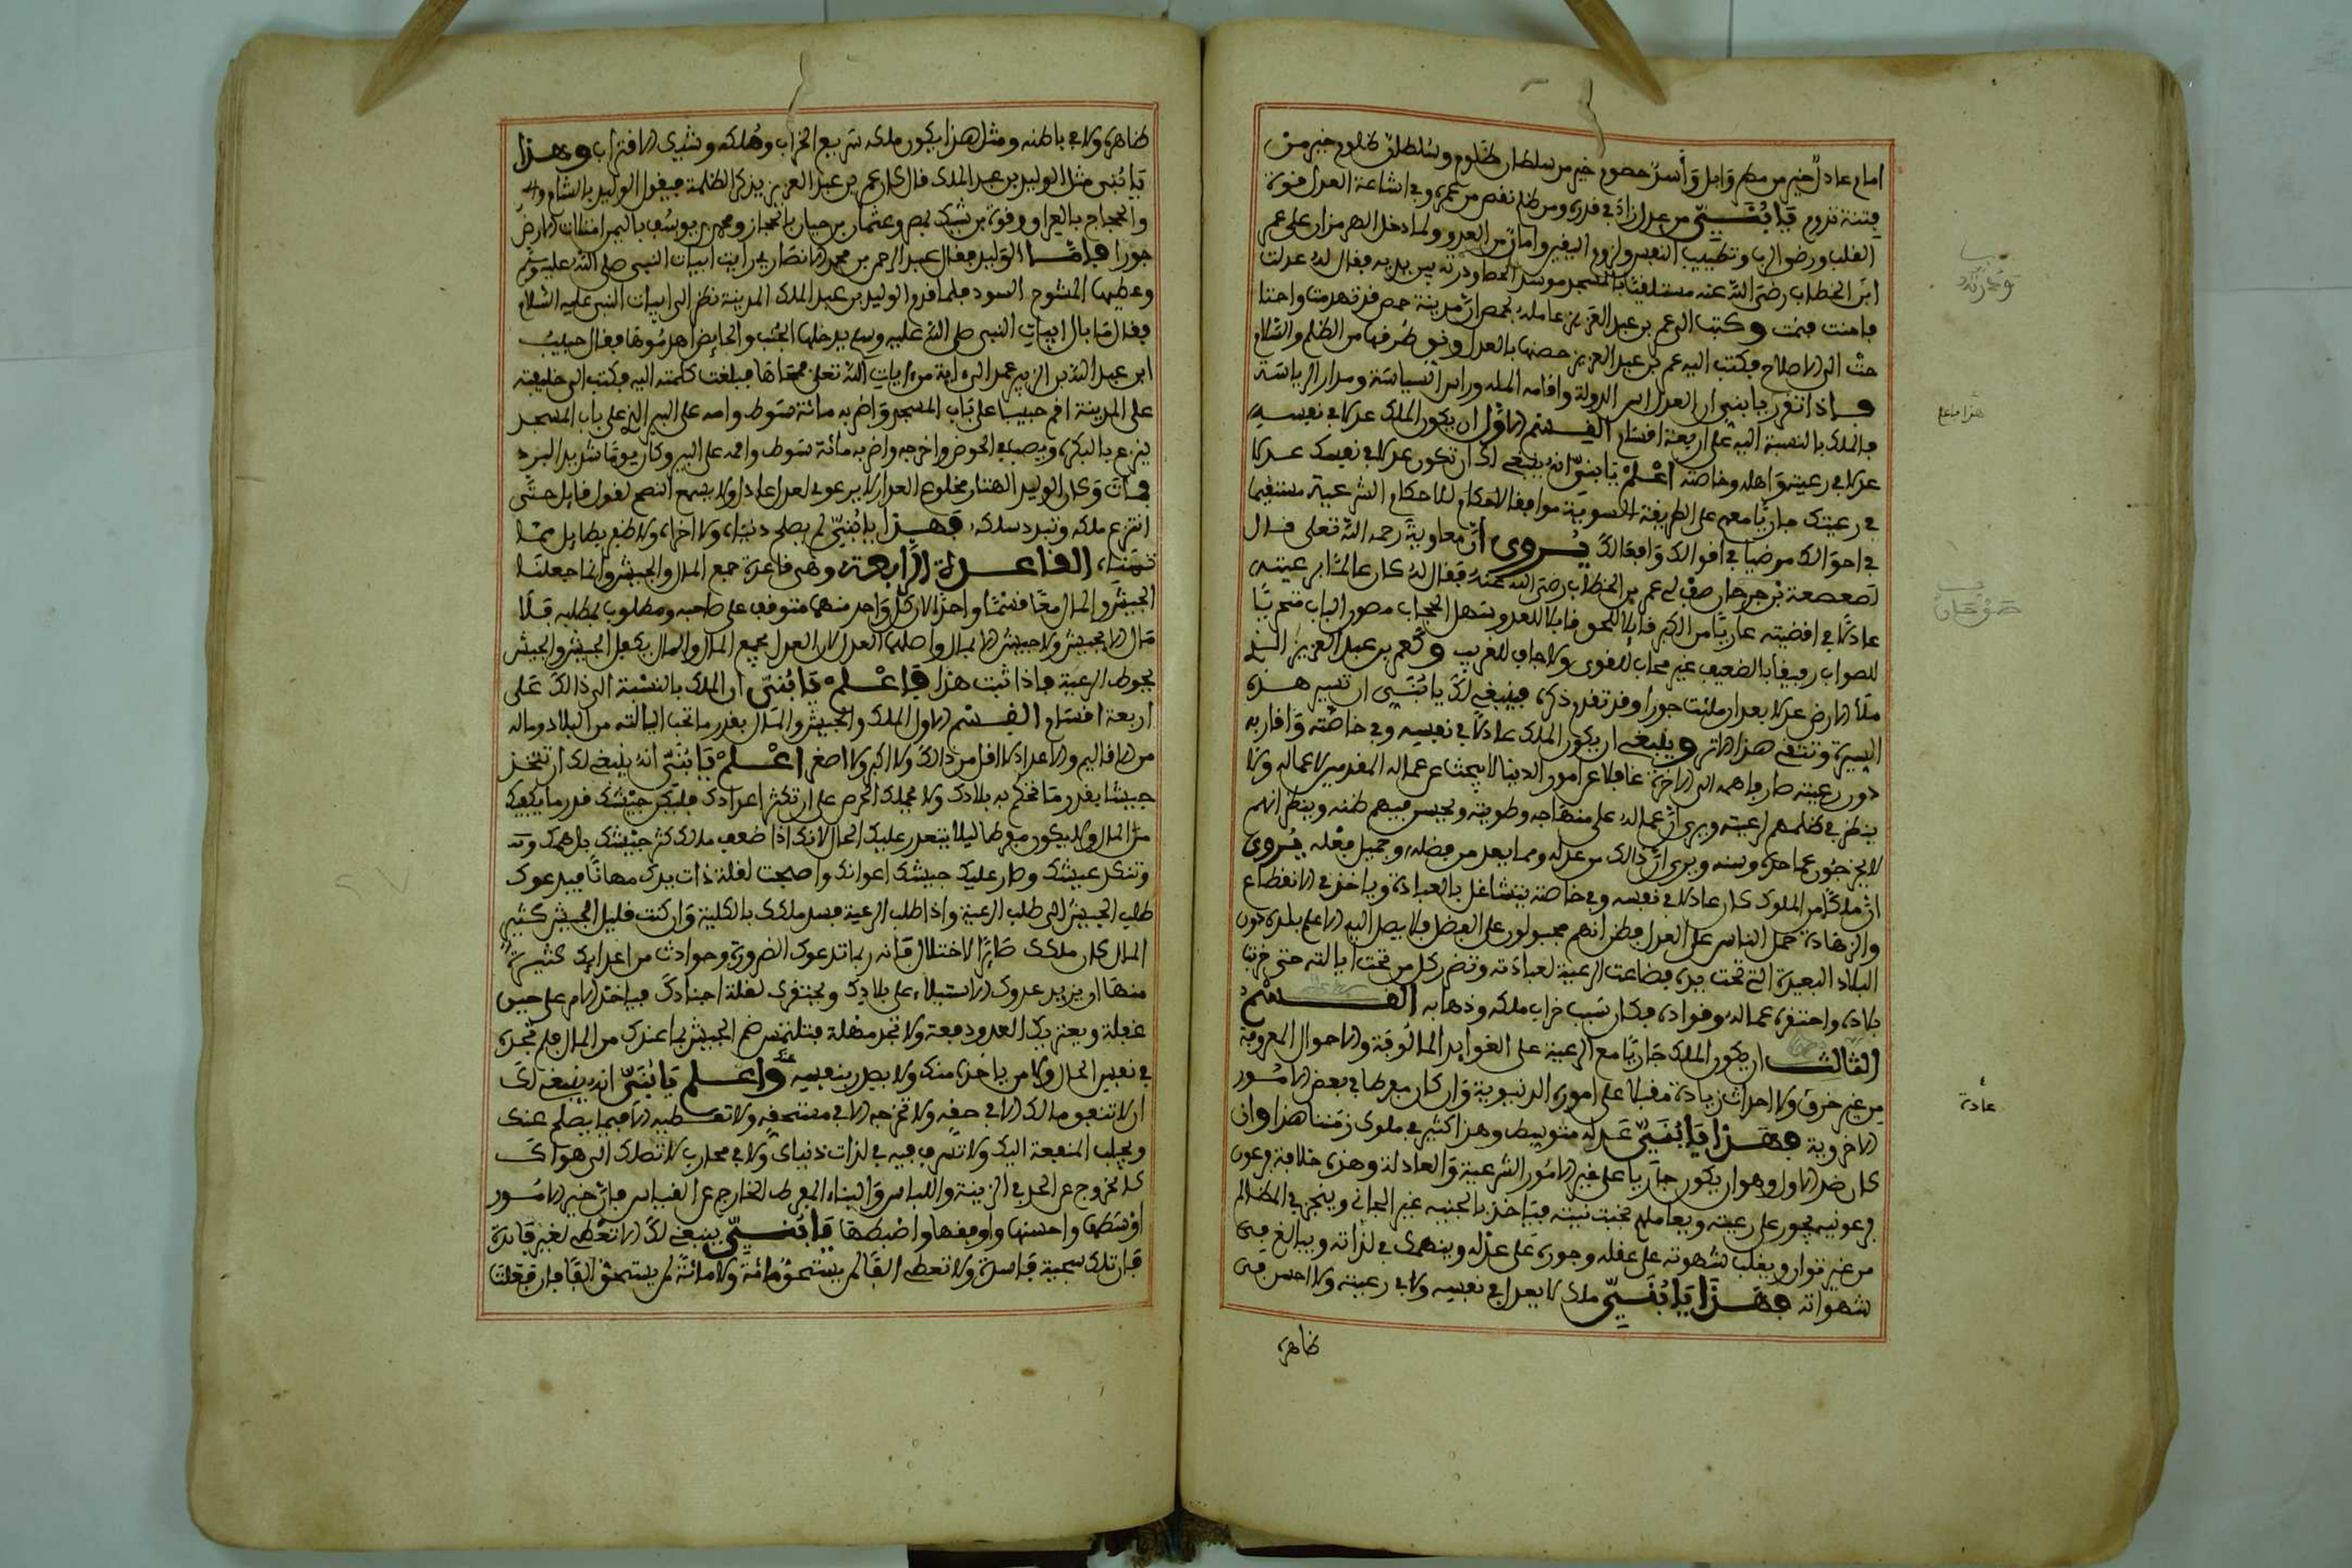 امام عادل خير من مطر وابل وأسد حصوم خير من سلطان ظلوم وسلطان ظلوم خير من
فتنة تدوم يا بني من عدل زاد في قدره ومن ظلم نقص من عمره وفي اشاعة العدل قوة
القلب ورضى الرب وتطييب النفس ولزوم اليقين وامان من العدو ولما دخل الهرمزان على عمر
ابن الخطاب رضي الله عنه مستلقيا بالمسجد موسد الحصا ودرته بين يديه فقال له عدلت
فامنت فنمت وكتب الى عمر بن عبد العزيز عامله بحمص ان مدينة حمص قد تهدمت واحتا
جت الى الاصلاح فكتب اليه عمر بن عبد العزيز حصنها بالعدل ونق طرقها من الظلم والسلام
واذا تقرر يا بني ان العدل اس الدولة واقامة الملة وراس السياسة ومدار الرياسة
فالملك بالنسبة اليه على اربعة اقسام القسم الاول ان يكون الملك عدلا في نفسه
عدلا في رعيته واهله وخاصته اعلم يا بني انه ينبغي لك ان تكون عدلا في نفسك عدلا
في رعيتك جاريا معهم على الطريقة السوية موافقا لاحكام للاحكام الشرعية مستقيما
في احوالك مرضيا في اقوالك وافعالك يروى ان معاوية رحمه الله تعلى قال
لصعصعة بن صوحان صف لي عمر بن الخطاب رضي الله عنه فقال له كان عالما برعيته
عادلا في اقضيته عاريا من الكبر قابلا للحق قابلا للعذر سهل الحجاب مصون الباب متحريا
للصواب رفيقا بالضعيف غير محاب للقوى ولا جاف للغريب وكعمر بن عبد العزيز الذي
ملأ الارض عدلا بعد ان ملئت جورا وقد تقدم ذكره فينبغي لك يا بني ان تسير هذه
السيرة وتقتفي هذا الاثر وينبغي ان يكون الملك عادلا في نفسه وفي خاصته واقاربه
دون رعيته صارفا همه الى الاخرة غافلا عن امور الدنيا لا يبحث عن عماله المفسدين لاعماله ولا
ينظر في ظلمهم لرعيته ويرى ان عماله على منهاجه وطويته ويحسن فيهم ظنه ويظن انهم
لا يخرجون عما حده وسنه ويرى ان ذالك من عدله ومما يعد من فضله وجميل فعله يروى
ان ملكا من الملوك كان عادلا في نفسه وفي خاصته يتشاغل بالعبادة وياخذ في الانقطاع
والزهادة حمل الناس على العدل فظن انهم مجبولون على الفضل فلا يصل اليه الا علم بلده دون
البلاد البعيدة التي تحت يده فضاعت الرعية لعبادته وتضرر كل من تحت ايالته حتى خربت
بلاده واحتقره عماله وقواده فكان سبب خراب ملكه وذهابه القسم
الثالث ان يكون الملك جاريا مع الرعية على العوايد المالوفة والاحوال المعروفة
من غير خرق ولا احداث زيادة مقبلا على اموره الدنيوية وان كان مفرطا في بعض الامور
الاخروية فهذا يا بني عدله متوسط وهذا كثير في ملوك زمننا هذا وان
كان ضد الاول وهو ان يكون جاريا على غير الامور الشرعية والعادلة وهذه خلافة فرعون
فرعونية يجور على رعيته ويعاملهم بخبث نيته فياخذ بالجنية غير الجاني ويتجرى المظالم
من غير توان ويغلب شهوته على عقله وجوره على عدله وينهمك في لذاته ويبالغ في
شهواته فهذا يا بني ملك لا يعدل في نفسه ولا في رعيته ولا احسن في
ظاهره
ودرته
هذا ما على
صوحان
عادة
ظاهره ولا في باطنه ومثل هذا يكون ملكه سريع الخراب وهلكه وشيك الاقتراب وهذا
يا بني مثل الوليد بن عبد الملك قال كان عمر بن عبد العزيز يذكر الظلمة فيقول الوليد بالشام
والحجاج بالعراق وقرة بن شريك بمصر وعثمان بن حيان بالحجاز ومحمد بن يوسف باليمن امتلات الارض
جورا فاما الوليد فقال عبد الرحمن بن محمد الانصاري رايت ابيات النبي صلى الله عليه وسلم
وعليها المسوح السود فلما قدم الوليد بن عبد الملك المدينة نظر الى ابيات النبي عليه السلام
فقال ما بال ابيات النبي صلى الله عليه وسلم يدخلها الجنب والحايض اهدموها فقال حبيب
ابن عبد الله بن الزبير عمد الى ءاية من ءايات الله تعلى فمحاها فبلغت كلمته اليه فكتب الى خليفته
على المدينة اقم حبيبا على باب المسجد واضربه مائة سوط واقمه على البير التي على باب المسجد
ينزع بالبكرة ويصب في الحوض واخرجه واضربه مائة سوط واقمه على البير وكان يوما شديد البرد
فمات وكان الوليد الهتار مخلوع العذار لا يرعوي لعدل عادل ولا يسمع النصح لقول قايل حتى
انتزع ملكه وتبدد سلكه فهذا يا بني لم يصلح دنياه ولا اخراه ولا ظفر بطايل مما
تمناه القاعدة الرابعة وهي قاعدة جمع المال والجيش وانما جعلنا
الجيش والمال معا قسما واحدا لان كل واحد منهما متوقف على صاحبه ومطلوب بمطلبه فلا
مال الا بجيش ولا جيش الا بمال واصلها العدل لان العدل يجمع المال والمال يكفل الجيش والجيش
يحوط الرعية فاذا ثبت هذا فاعلم يا بني ان الملك بالنسبة الى ذالك على
اربعة اقسام القسم الاول الملك والجيش والمال بقدر ما تحت ايالته من البلاد وماله
من الاقاليم والاعداد لا اقل من ذالك ولا اكبر ولا اصغر اعلم يا بني انه ينبغي لك ان تتخذ
جيشا بقدر ما تحكم به بلادك ولا يحملك الحرص على ان تكثر اعدادك فليكن جيشك قدر ما يكفيك
من المال ولا يكون مفرطا ليلا يتعذر عليك الحال لانك اذا ضعف مالك كثر جيشك بك همك
وتنكد عيشك وصار عليك جيشك اعوانك واصبحت لقلة ذات يدك مهانا فيدعوك
طلب الجيش الى طلب الرعية واذا طلب الرعية فسد ملكك بالكلية وان كنت قليل الجيش كثير
المال كان ملكك صايرا لاختلال فانه ربما تدعوك الضرورة وحوادث من اعدايك كثيرة
منها ان يريد عدوك الاستيلاء على بلادك ويحتقرك لقلة اجنادك فياخذ الامر على حين
غفلة ويعتريك العدو دفعة ولا تجد مهلة فتلتمس ضم الجيش بما عندك من المال فلم تجده
في تغيير الحال ولا من ياخذه منك ولا يصل بنفسه عنك واعلم يا بني انه ينبغي لك
ان لا تنفق مالك الا في حقه ولا تخرجه الا في مستحقه ولا تعطيه الا فيما يصلح عندك
ويجلب المنفعة اليك ولا تصرف فيه في لذات دنياك ولا في محارب لا تصلك الى هواك
كالخروج عن الحد في الزينة واللباس والبناء المفرط الخارج عن القياس فان خير الامور
اوسطها واحسنها واوفقها واضبطها يا بني ينبغي لك الا تعطي لغير فايدة
فان تلك سجية فاسدة ولا تعطى الفا لمن يستحق مائة ولا مائة لمن يستحق الفا فان فعلت